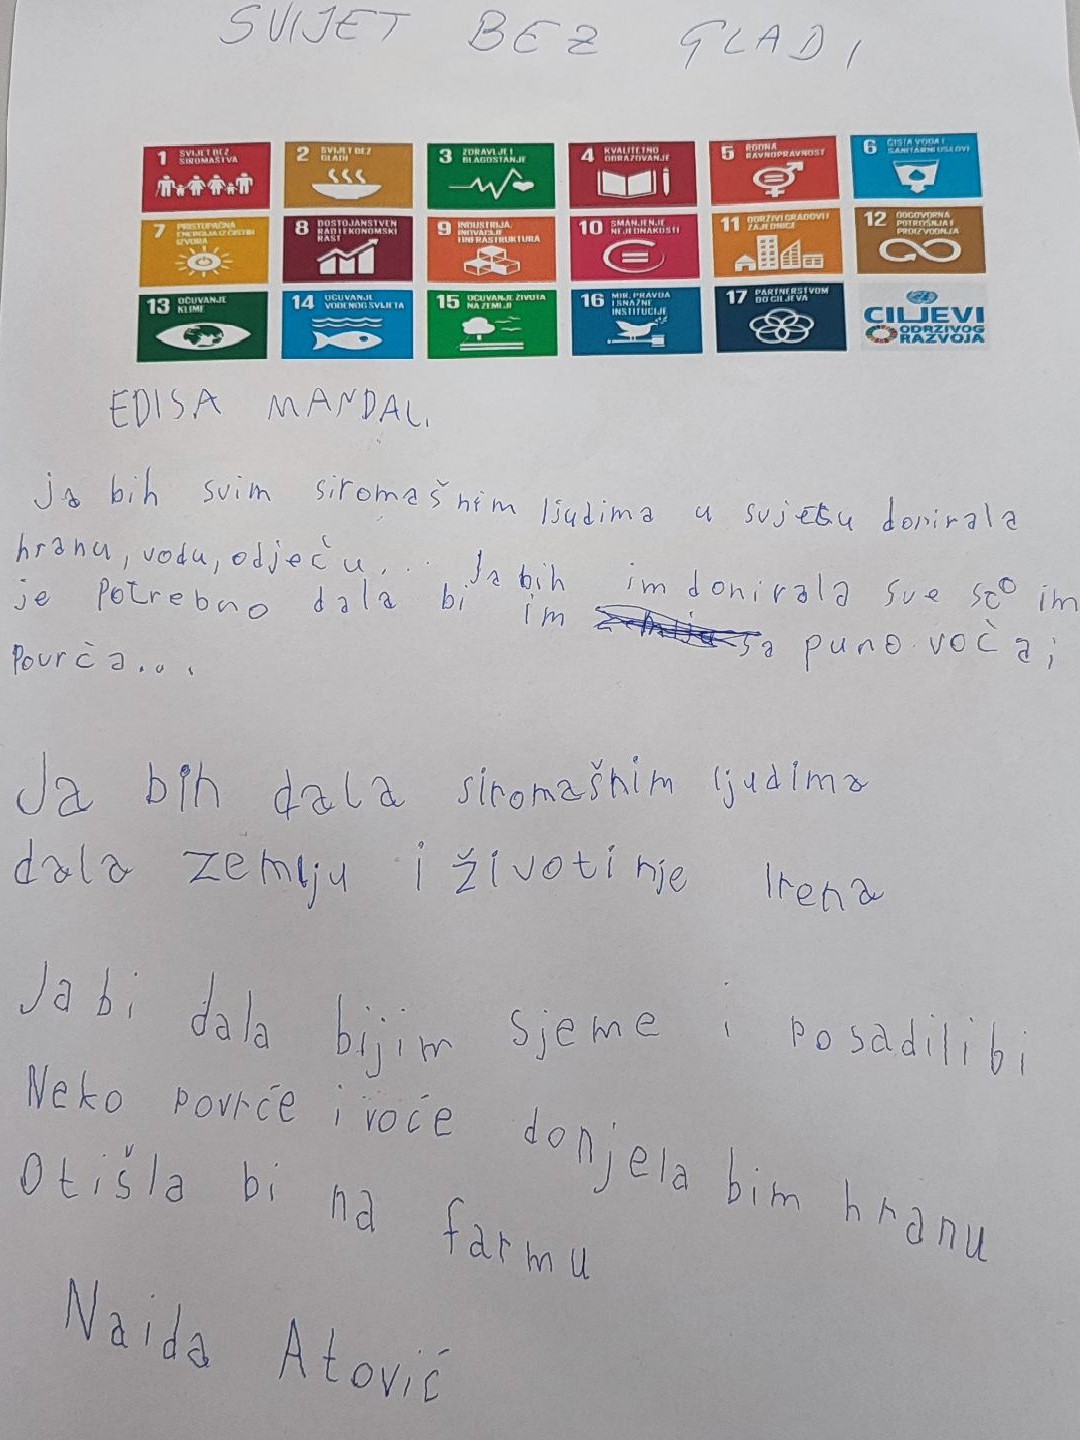 SVIJET BEZ GLADI
1 SVIJET BEZ SIROMAŠTVA
2 SVIJET BEZ GLADI
3 ZDRAVLJE I BLAGOSTANJE
4 KVALITETNO OBRAZOVANJE
5 RODNA RAVNOPRAVNOST
6 ČISTA VODA I SANITARNI USLOVI
7 PRISTUPAČNA ENERGIJA IZ ČISTIH IZVORA
8 DOSTOJANSTVEN RAD I EKONOMSKI RAST
9 INDUSTRIJA, INOVACIJE I INFRASTRUKTURA
10 SMANJENJE NEJEDNAKOSTI
11 ODRŽIVI GRADOVI I ZAJEDNICE
12 ODGOVORNA POTROŠNJA I PROIZVODNJA
13 OČUVANJE KLIME
14 OČUVANJE VODENOG SVIJETA
15 OČUVANJE ŽIVOTA NA ZEMLJI
16 MIR, PRAVDA I SNAŽNE INSTITUCIJE
17 PARTNERSTVOM DO CILJEVA
CILJEVI ODRŽIVOG RAZVOJA
EDISA MANDAL.
Ja bih svim siromašnim ljudima u svjetu donirala
hranu, vodu, odjeću... Ja bih im donirala sve što im
je potrebno dala bi im sa puno voća i
Povrća...
Ja bih dala siromašnim ljudima
dala zemlju i životinje Irena
Ja bi dala bijim sjeme i posadili bi
Neko povrće i voće donjela bim hranu
Otišla bi na farmu
Naida Atović